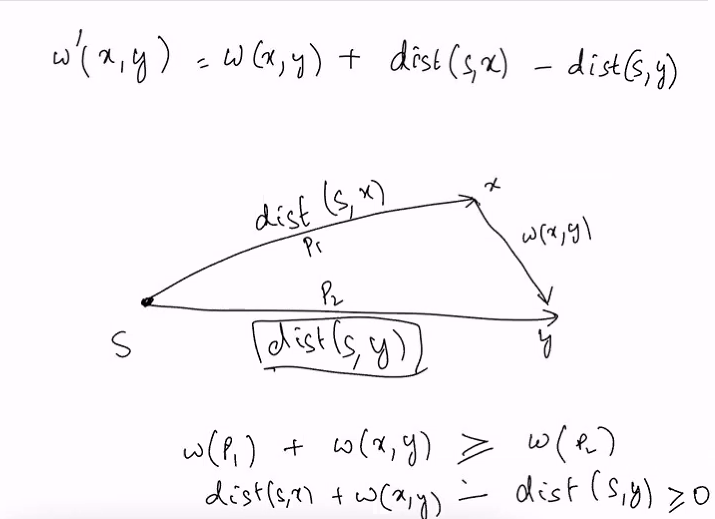 w'(x,y) = w(x,y) + dist(s,x) - dist(s,y)
x
dist(s,x)
P1
w(x,y)
P2
S
dist(s,y)
y
w(P1) + w(x,y) ≥ w(P2)
dist(s,x) + w(x,y) - dist(s,y) ≥ 0